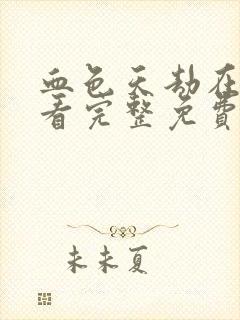 血色天劫在
看完整免费
未未夏